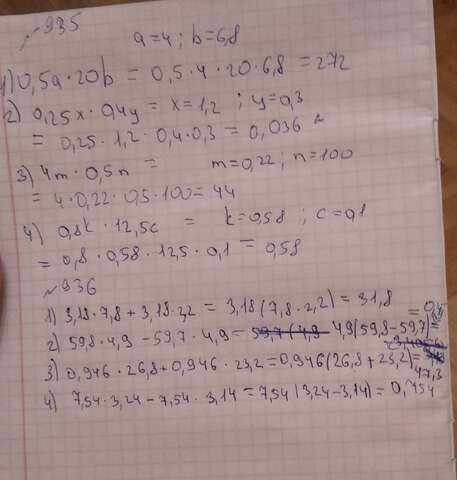 №935
a=4 ; b=6,8
1) 0,5a·20b = 0,5·4·20·6,8 = 272
2) 0,25x·0,4y = x=1,2 ; y=0,3
= 0,25·1,2·0,4·0,3 = 0,036
3) 4m·0,5n = m=0,22; n=100
= 4·0,22·0,5·100 = 44
4) 0,8k·12,5c = k=0,58 ; c=0,1
= 0,8·0,58·12,5·0,1 = 0,58
№936
1) 3,18·7,8+3,18·2,2 = 3,18(7,8·2,2) = 31,8
2) 59,8·4,9-59,7·4,9= 4,9(59,8-59,7)=
3) 0,946·26,8+0,946·23,2=0,946(26,8+23,2)= 47,3
4) 7,54·3,24-7,54·3,14=7,54(3,24-3,14)=0,754